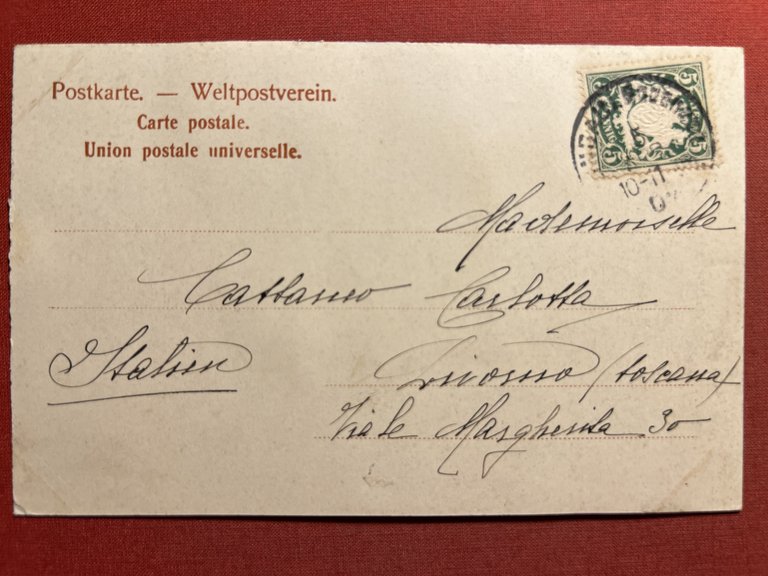 Postkarte. — Weltpostverein.
Carte postale.
Union postale universelle.
5 5
5
10-11
Mademoiselle
Cattaneo Carlotta
Italien
Livorno (Toscana)
Viale Margherita 30